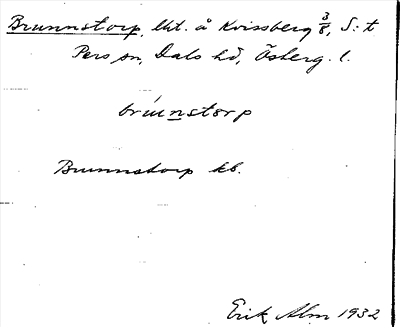 Brunnstorp, lht. å Kvissberg 3/8, S:t
Pers sn, Dals hd, Ösberg. l.
brúnnstørp
Brunnstorp kb.
Erik Alm 1932